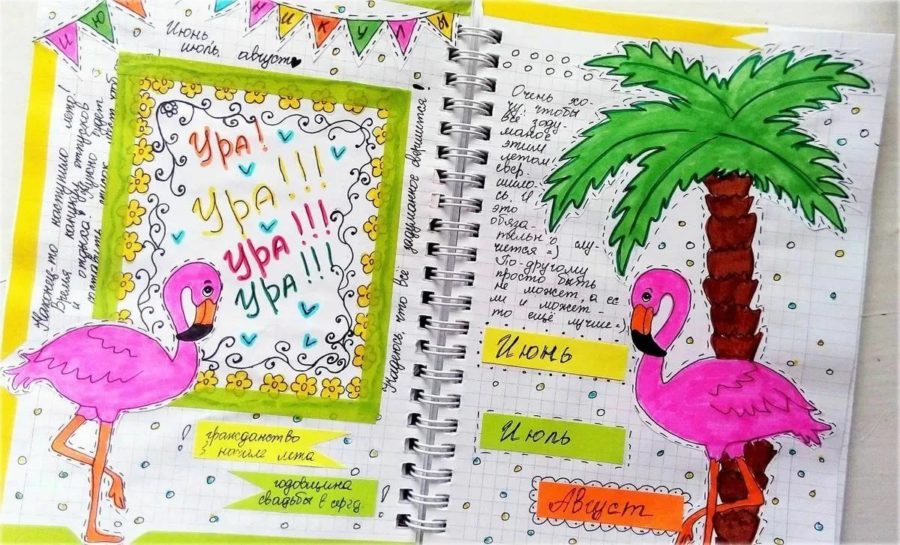 Июнь
июль, август
Ура!
Ура!!!
Ура!!!
Ура!!!
Наконец-то наступило лето!
Время каникул, отпусков
и отдыха!
Надеюсь, что все задуманное свершится!
гражданство
в начале лета
годовщина
свадьбы в серед.
Очень хо-
чу, чтобы
все заду-
маное
этим
летом
свер
шило
сь. И
это
обяза-
тельно
случется =)
По-другому
просто быть
не может, а ес
ли и может-
то ещё лучше=)
Июнь
Июль
Август